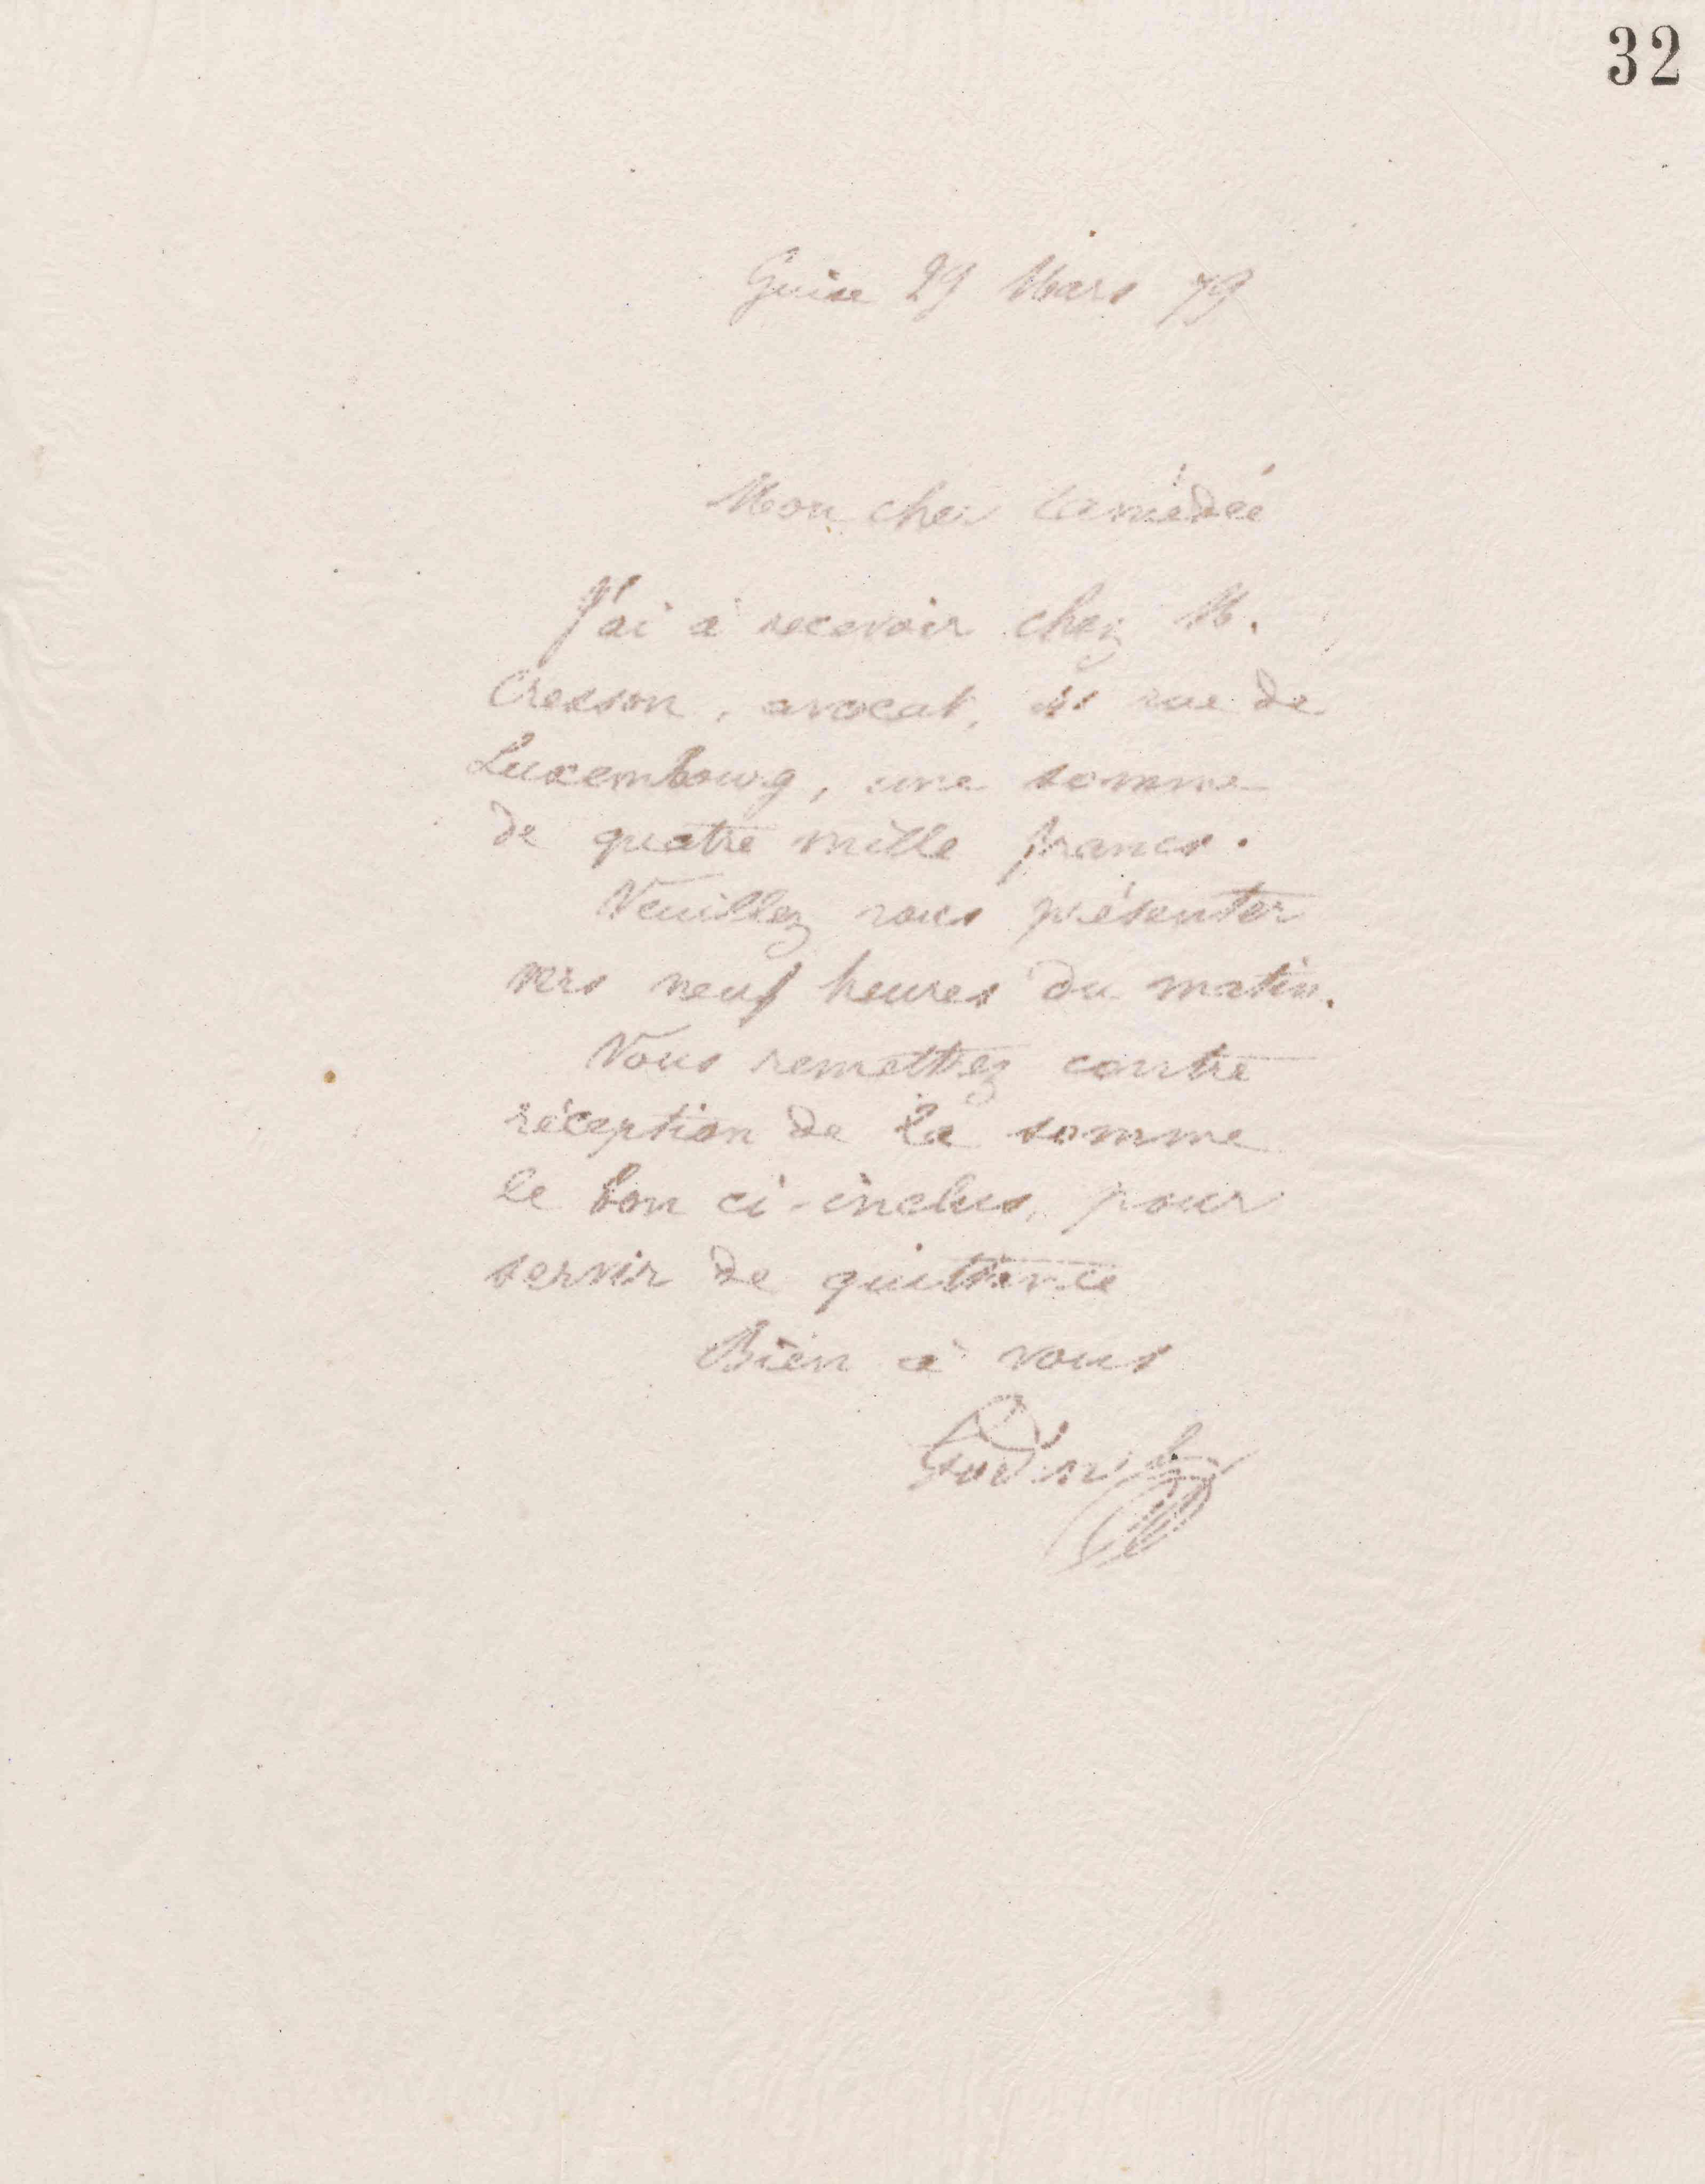 32
Guise 29 Mars 79
Mon cher Amédée
J'ai à recevoir chez M.
Cresson, avocat, rue de
Luxembourg, une somme
de quatre mille francs.
Veuillez vous présenter
vers neuf heures du matin.
Vous remettrez contre
réception de la somme
le bon ci-inclus, pour
servir de quittance
Bien à vous
Godin